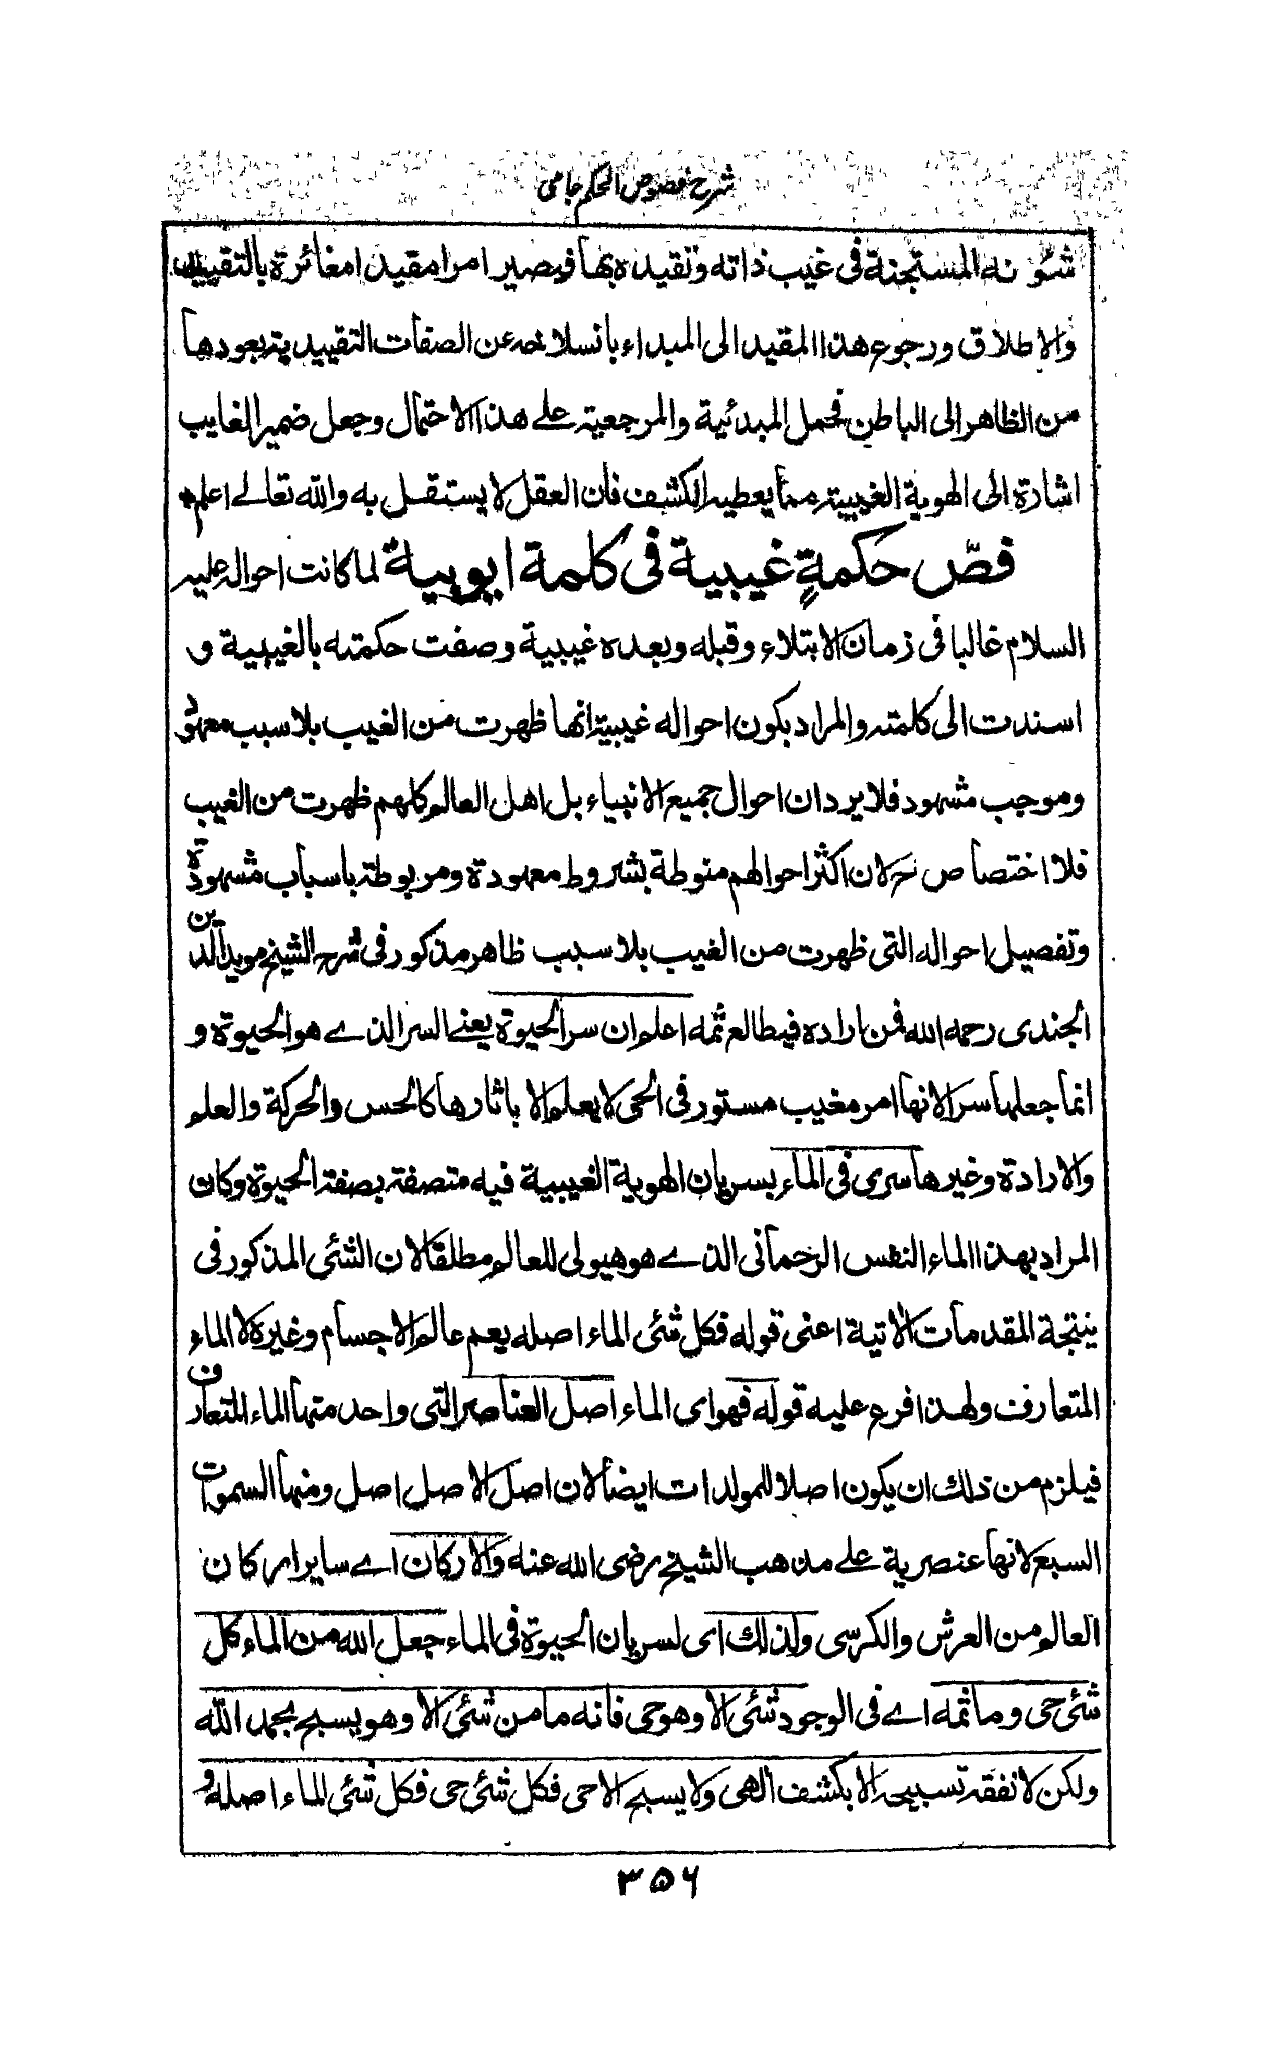 شرح فصوص الحكم جامى
شئونه المستجنة فى غيب ذاته وتقيده بها فيصير امرا مقيدا مغائرة بالتقييد
والاطلاق ورجوع هذا المقيد الى المبداء بانسلاخه عن الصفات التقييدية بعودها
من الظاهر الى الباطن فحمل المبدئية والمرجعية علے هذا الاحتمال وجعل ضمير الغايب
اشارة الى الهوية الغيبية مما يعطيه الكشف فان العقل لا يستقل به والله تعالے اعلم
فصّ حكمةٍ غيبية فى كلمة ايوبية لما كانت احواله عليه
السلام غالبا فى زمان الابتلاء وقبله وبعده غيبية وصفت حكمته بالغيبية و
اسندت الى كلمته والمراد بكون احواله غيبية انها ظهرت من الغيب بلا سبب معهود
وموجب مشهود فلا يرد ان احوال جميع الانبياء بل اهل العالم كلهم ظهرت من الغيب
فلا اختصاص لان اكثر احوالهم منوطة بشروط معهودة ومربوطة باسباب مشهودة
وتفصيل احواله التى ظهرت من الغيب بلا سبب ظاهر مذكور فى شرح الشيخ مويد الدين
الجندى رحمه الله فمن اراده فيطالع ثمه اعلم ان سر الحيوة يعنے السر الذے هو الحيوة و
انما جعلها سرا لانها امر مغيب مستور فى الحى لا يعلم الا باثارها كالحس والحركة والعلم
والارادة وغيرها سرى فى الماء بسريان الهوية الغيبية فيه متصفة بصفة الحيوة وكان
المراد بهذا الماء النفس الرحمانى الذے هو هيولى للعالم مطلقا لان الشئى المذكور فى
نتيجة المقدمات الاتية اعنى قوله فكل شئى الماء اصله يعم عالم الاجسام وغيره لا الماء
المتعارف ولهذا فرع عليه قوله فهو اى الماء اصل العناصر التى واحد منها الماء المتعارف
فيلزم من ذلك ان يكون اصلا للمولدات ايضا لان اصل الاصل اصل ومنها السموات
السبع لانها عنصرية علے مذهب الشيخ رضى الله عنه والاركان اے ساير اركان
العالم من العرش والكرسى ولذلك اى لسريان الحيوة فى الماء جعل الله من الماء كل
شئى حى وما ثمه اے فى الوجود شئى الا وهو حى فانه ما من شئى الا وهو يسبح بحمد الله
ولكن لا تفقه تسبيحه الا بكشف الهى ولا يسبح الا حى فكل شئى حى فكل شئى الماء اصله و
۳۵۶